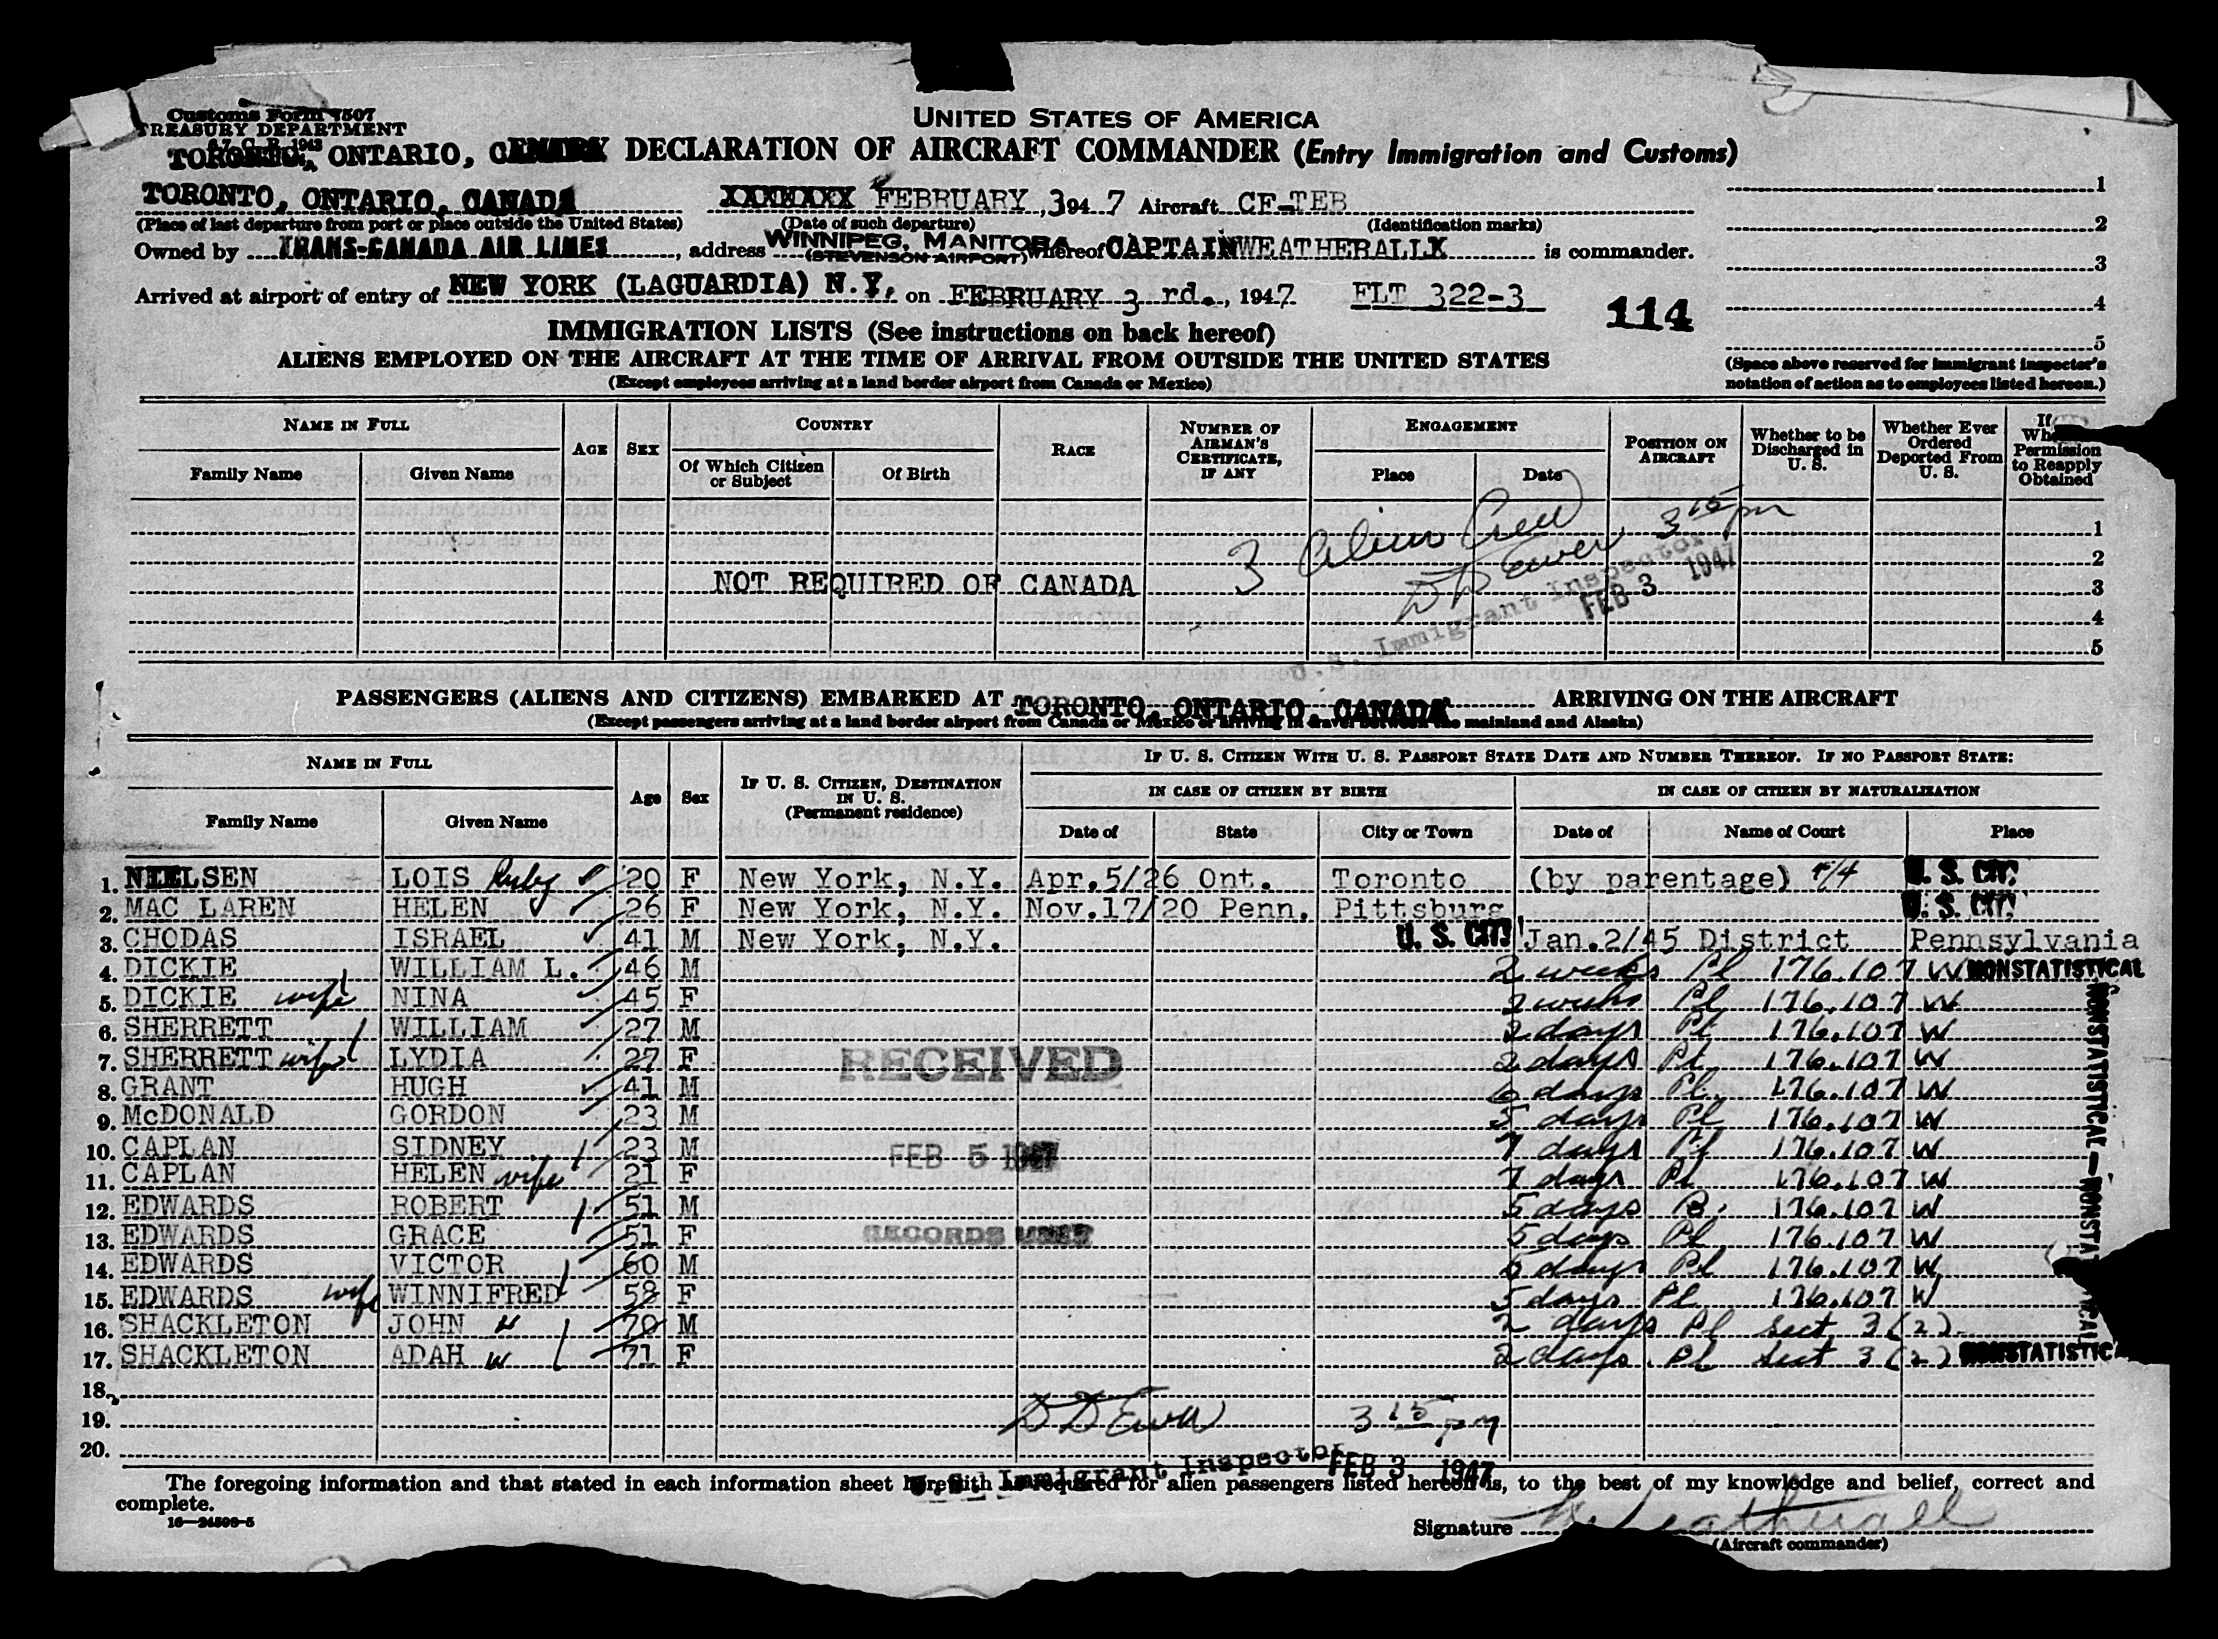 Customs Form 7507
TREASURY DEPARTMENT
UNITED STATES OF AMERICA
TORONTO, ONTARIO, CANADA DECLARATION OF AIRCRAFT COMMANDER (Entry Immigration and Customs)
TORONTO, ONTARIO, CANADA XXXXXXX FEBRUARY ,3 94 7 Aircraft CF-TEB
(Place of last departure from port or place outside the United States) (Date of such departure) (Identification marks)
Owned by TRANS-CANADA AIR LINES, address WINNIPEG, MANITOBA (STEVENSON AIRPORT) whereof CAPTAIN WEATHERALLX is commander.
Arrived at airport of entry of NEW YORK (LAGUARDIA) N.Y. on FEBRUARY 3 rd., 1947 FLT 322-3 114
1
2
3
4
5
(Space above reserved for immigrant inspector's notation of action as to employees listed hereon.)
IMMIGRATION LISTS (See instructions on back hereof)
ALIENS EMPLOYED ON THE AIRCRAFT AT THE TIME OF ARRIVAL FROM OUTSIDE THE UNITED STATES
(Except employees arriving at a land border airport from Canada or Mexico)
NAME IN FULL AGE SEX COUNTRY RACE NUMBER OF AIRMAN'S CERTIFICATE, IF ANY ENGAGEMENT POSITION ON AIRCRAFT Whether to be Discharged in U. S. Whether Ever Ordered Deported From U. S. If Permission to Reapply Obtained
Family Name Given Name Of Which Citizen or Subject Of Birth Place Date
1
2
3
4
5
NOT REQUIRED OF CANADA
3 Aliens Crew 3 15 pm
D D Ewer
U. S. Immigrant Inspector
FEB 3 1947
PASSENGERS (ALIENS AND CITIZENS) EMBARKED AT TORONTO, ONTARIO CANADA ARRIVING ON THE AIRCRAFT
(Except passengers arriving at a land border airport from Canada or Mexico or arriving in travel between the mainland and Alaska)
NAME IN FULL Age Sex IF U. S. CITIZEN, DESTINATION IN U. S. (Permanent residence) IF U. S. CITIZEN WITH U. S. PASSPORT STATE DATE AND NUMBER THEREOF. IF NO PASSPORT STATE:
IN CASE OF CITIZEN BY BIRTH IN CASE OF CITIZEN BY NATURALIZATION
Family Name Given Name Date of State City or Town Date of Name of Court Place
1. NIELSEN LOIS Ruby 20 F New York, N.Y. Apr.5/26 Ont. Toronto (by parentage) U. S. CIT.
2. MAC LAREN HELEN 26 F New York, N.Y. Nov.17/20 Penn. Pittsburg U. S. CIT.
3. CHODAS ISRAEL 41 M New York, N.Y. U. S. CIT. Jan.2/45 District Pennsylvania
4. DICKIE WILLIAM L. 46 M 2 weeks Pl 176.107 W NONSTATISTICAL
5. DICKIE wife NINA 45 F 2 weeks Pl 176.107 W
6. SHERRETT WILLIAM 27 M 2 days Pl 176.107 W
7. SHERRETT wife LYDIA 27 F 2 days Pl 176.107 W
8. GRANT HUGH 41 M 6 days Pl. 176.107 W
9. McDONALD GORDON 23 M 5 days Pl 176.107 W
10. CAPLAN SIDNEY 23 M 7 days Pl 176.107 W
11. CAPLAN HELEN wife 21 F 7 days Pl 176.107 W
12. EDWARDS ROBERT 51 M 5 days 176.107 W
13. EDWARDS GRACE 51 F 5 days Pl 176.107 W
14. EDWARDS VICTOR 60 M 5 days Pl 176.107 W
15. EDWARDS wife WINNIFRED 58 F 5 days Pl 176.107 W
16. SHACKLETON JOHN H 70 M 2 days Pl Sect 3(2)
17. SHACKLETON ADAH W 71 F 2 days Pl Sect 3(2) NONSTATISTICAL
18.
19.
20.
NONSTATISTICAL—NONSTATISTICAL
RECEIVED
FEB 5 1947
RECORDS UNIT
D D Ewer 3 15 pm
U. S. Immigrant Inspector FEB 3 1947
The foregoing information and that stated in each information sheet herewith as required for alien passengers listed hereon is, to the best of my knowledge and belief, correct and
complete.
16—24598-5
Signature Weatherall
(Aircraft commander)